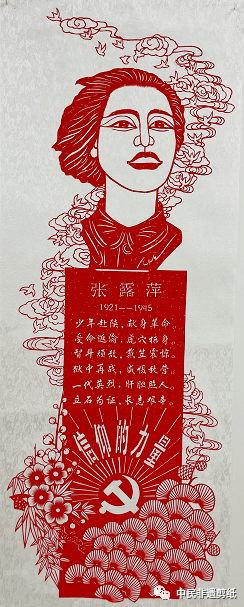 张露萍
1921——1945
少年赴陕，献身革命
受命返蓉，虎穴栖身。
智斗顽敌，戴笠震惊。
狱中再战，威慑敌营。
一代英烈，肝胆照人。
立石为证，长志艰辛。
信仰的力量
中民非遗剪纸